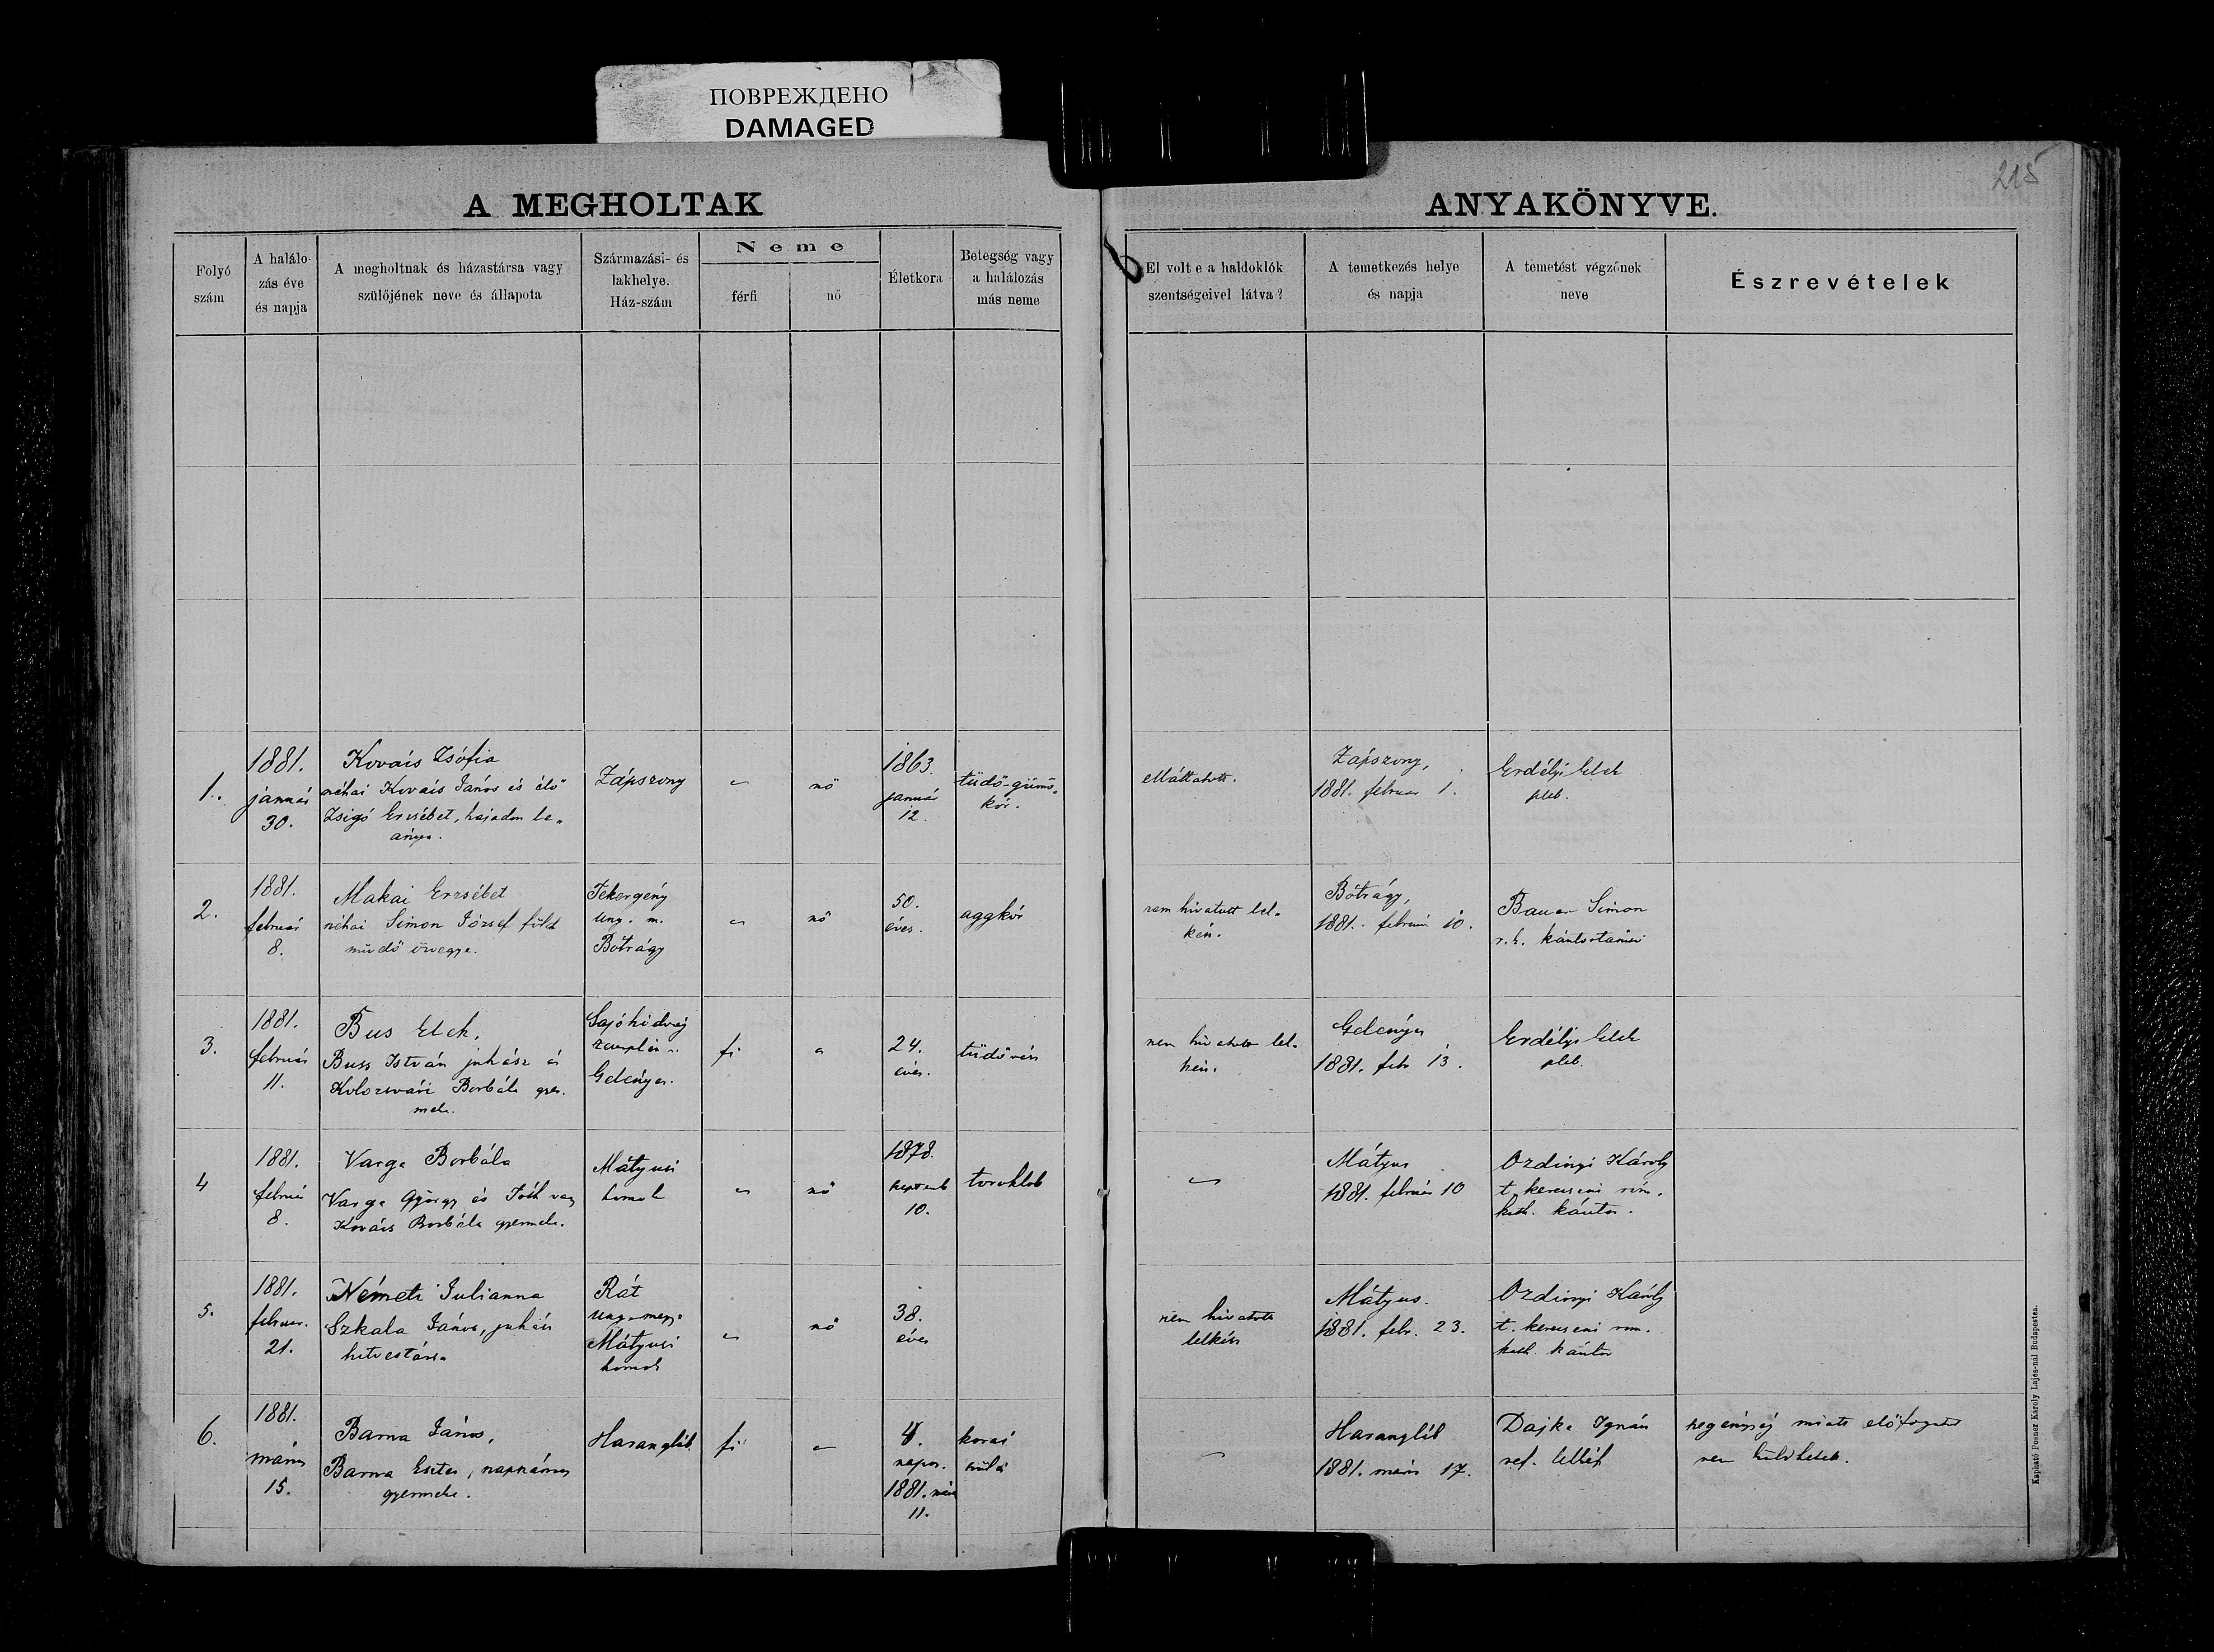 ПОВРЕЖДЕНО
DAMAGED
215
A MEGHOLTAK
ANYAKÖNYVE.
Folyó
szám
A halálo-
zás éve
és napja
A megholtnak és házastársa vagy
szülőjének neve és állapota
Származási- és
lakhelye.
Ház-szám
Neme
férfi
nő
Életkora
Betegség vagy
a halálozás
más neme
El volt e a haldoklók
szentségeivel látva?
A temetkezés helye
és napja
A temetést végzőnek
neve
Észrevételek
1.
1881.
január
30.
Kovács Zsófia
néhai Kovács János és élő
Zsigó Erzsébet, hajadon le„
ánya.
Zápszony
nő
1863.
január
12.
tüdő-gümő„
kór.
elláttatott.
Zápszony,
1881. februar 1.
Erdélyi Elek
pleb.
2.
1881.
február
8.
Makai Erzsébet
néhai Simon József föld
mívdő özvegye.
ung. m.
Bótrágy
nő
50.
éves.
aggkór
nem hivatott lel„
kész.
Bótrágy,
1881. február 10.
Bauer Simon
r. k. kántortanító
3.
1881.
február
11.
Bus Elek,
Buss István juhász és
Kolozsvári Borbála gyer.
meke.
Sajóhidvég
Gelényes.
fi
24.
éves.
tüdővész
nem hivatott lel„
kész.
Gelényes
1881. febr 13.
Erdélyi Elek
pleb.
4
1881.
február
8.
Varga Borbála
Varga György és Tóth vagy
Kovács Borbála gyermeke.
Mátyusi
homok
nő
1878.
septemb
10.
toroklob
Mátyus
1881. február 10
Ozdinyi Károly
t. kereszeni róm.
kath. kántor.
5.
1881.
februar.
21.
Németi Julianna
Szkala János, juhász
hitvestársa
Rát
ung-megy.
Mátyusi
homok
nő
38.
éves
nem hivatott
lelkész
Mátyus.
1881. febr. 23.
Ozdinyi Károly
t. kereszeni rom.
kath. kántor
6.
1881.
márius
15.
Barna János,
Barna Eszter, napszámos
gyermeke.
Harangláb
fi
4.
napos.
1881. már
11.
korai
szülés
Harangláb
1881. márs 17.
Dajka Ignácz
ref. lelkész
szegénység miatt előfogatot
nem küldhettek.
Kapható Posner Károly Lajos-nál Budapesten.